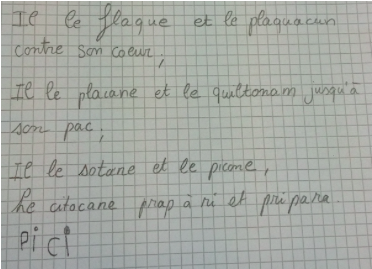 Il le flaque et le plaquacun
contre son coeur,
Il le placane et le quiltonam jusqu'à
son pac,
Il le sotane et le picone,
he citocane prap à ri et pripara.
PiCi